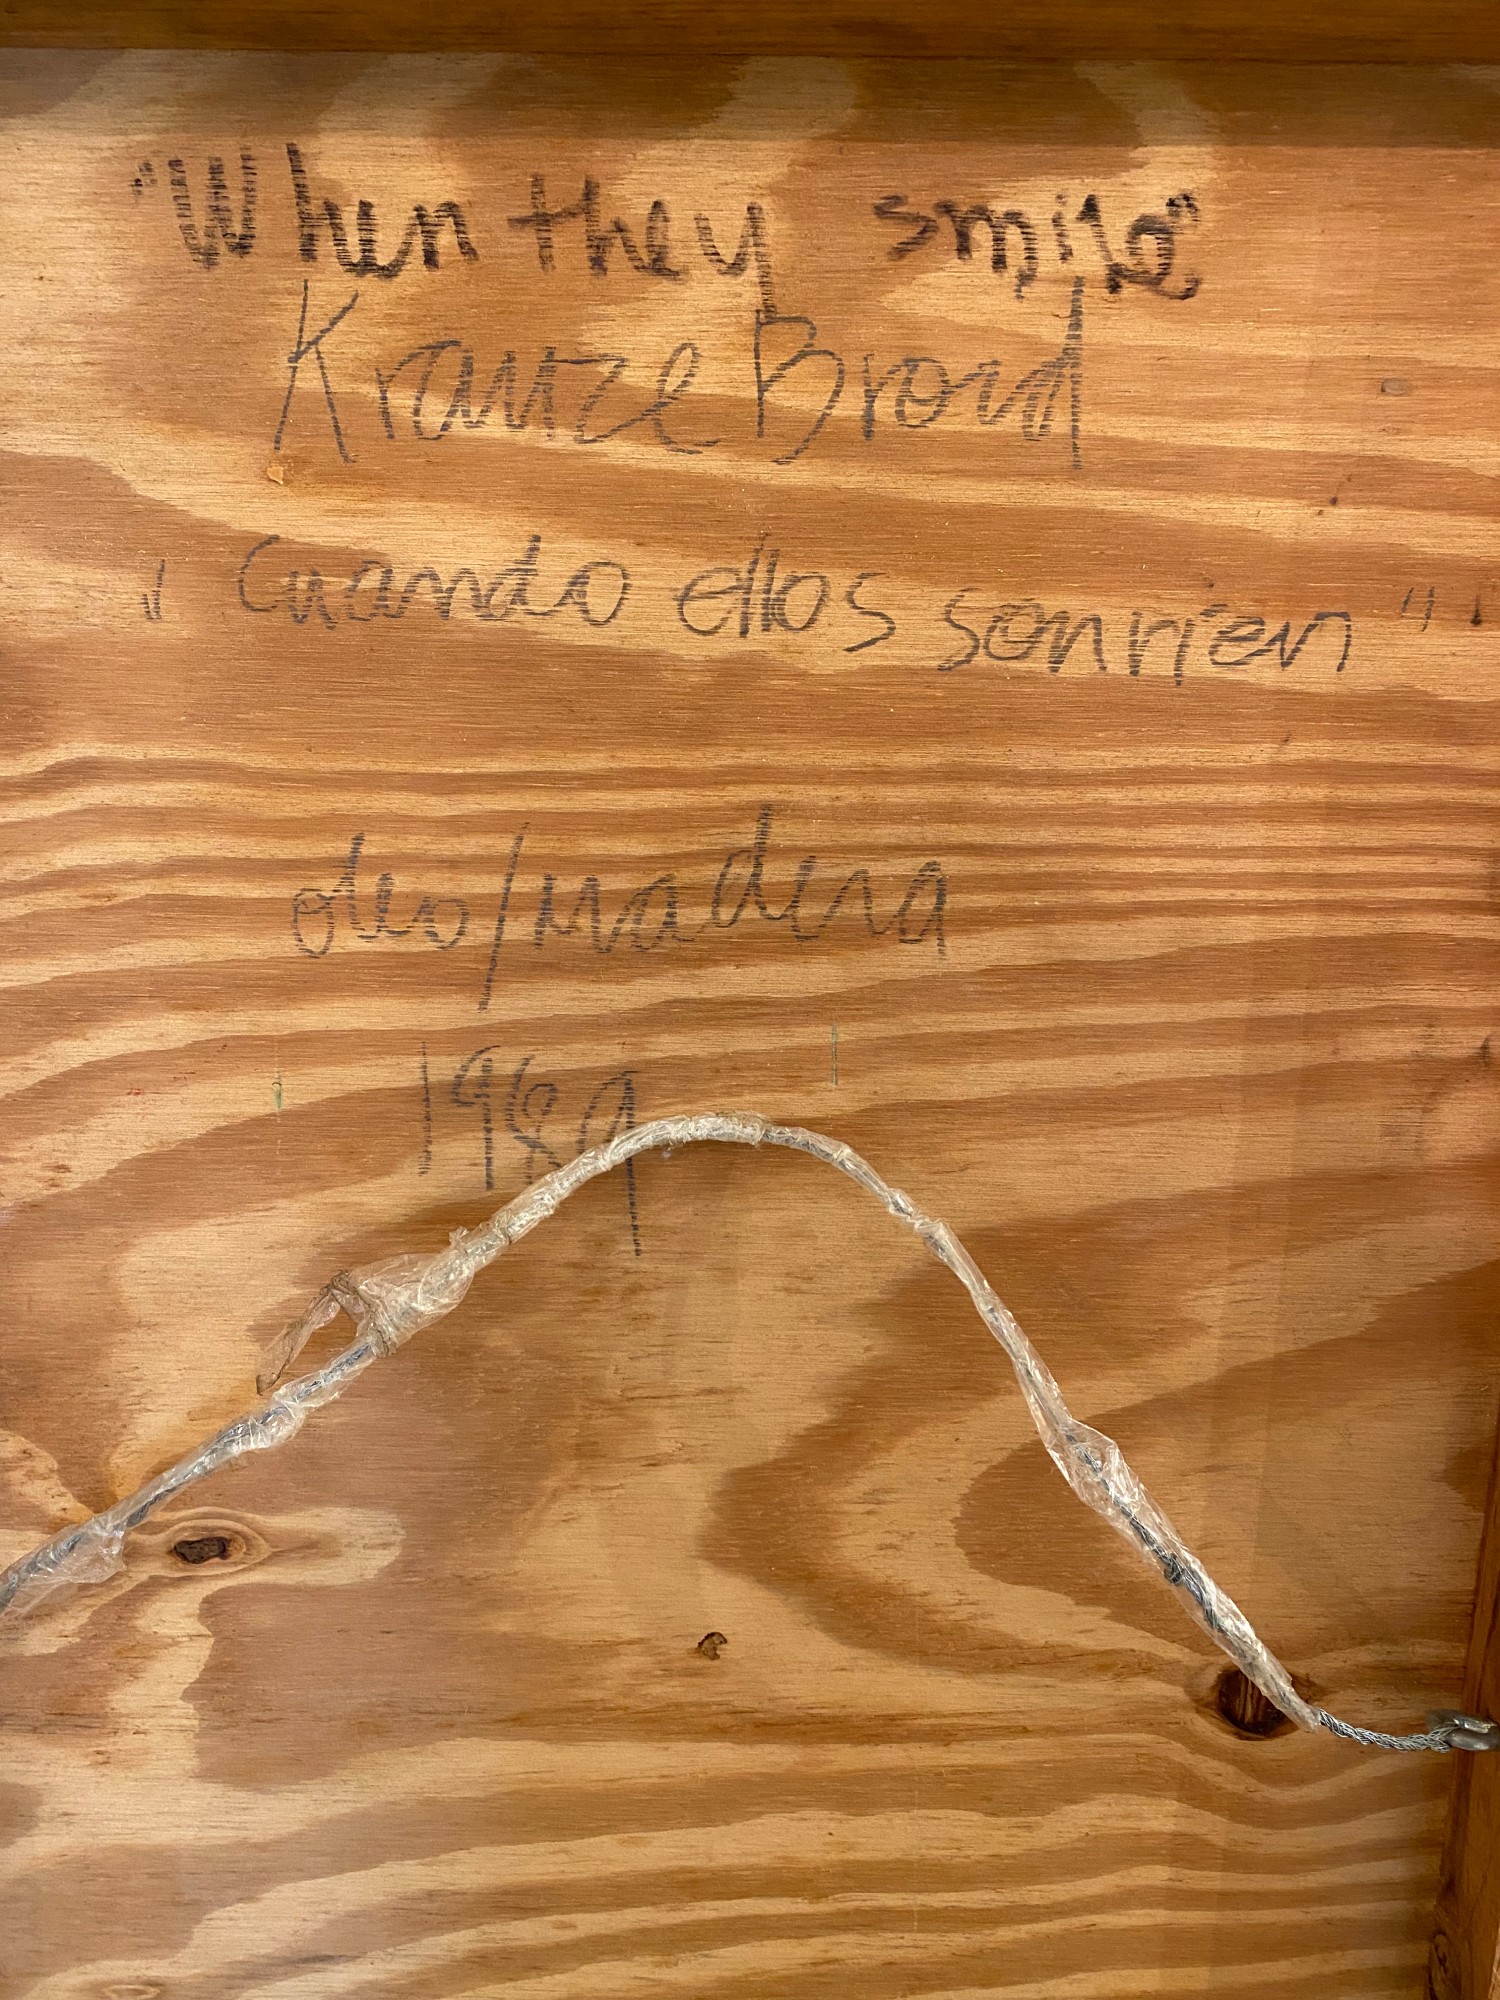 "When they smile"
Krauze Broid
" Cuando ellos sonrien "
oleo/madera
1989